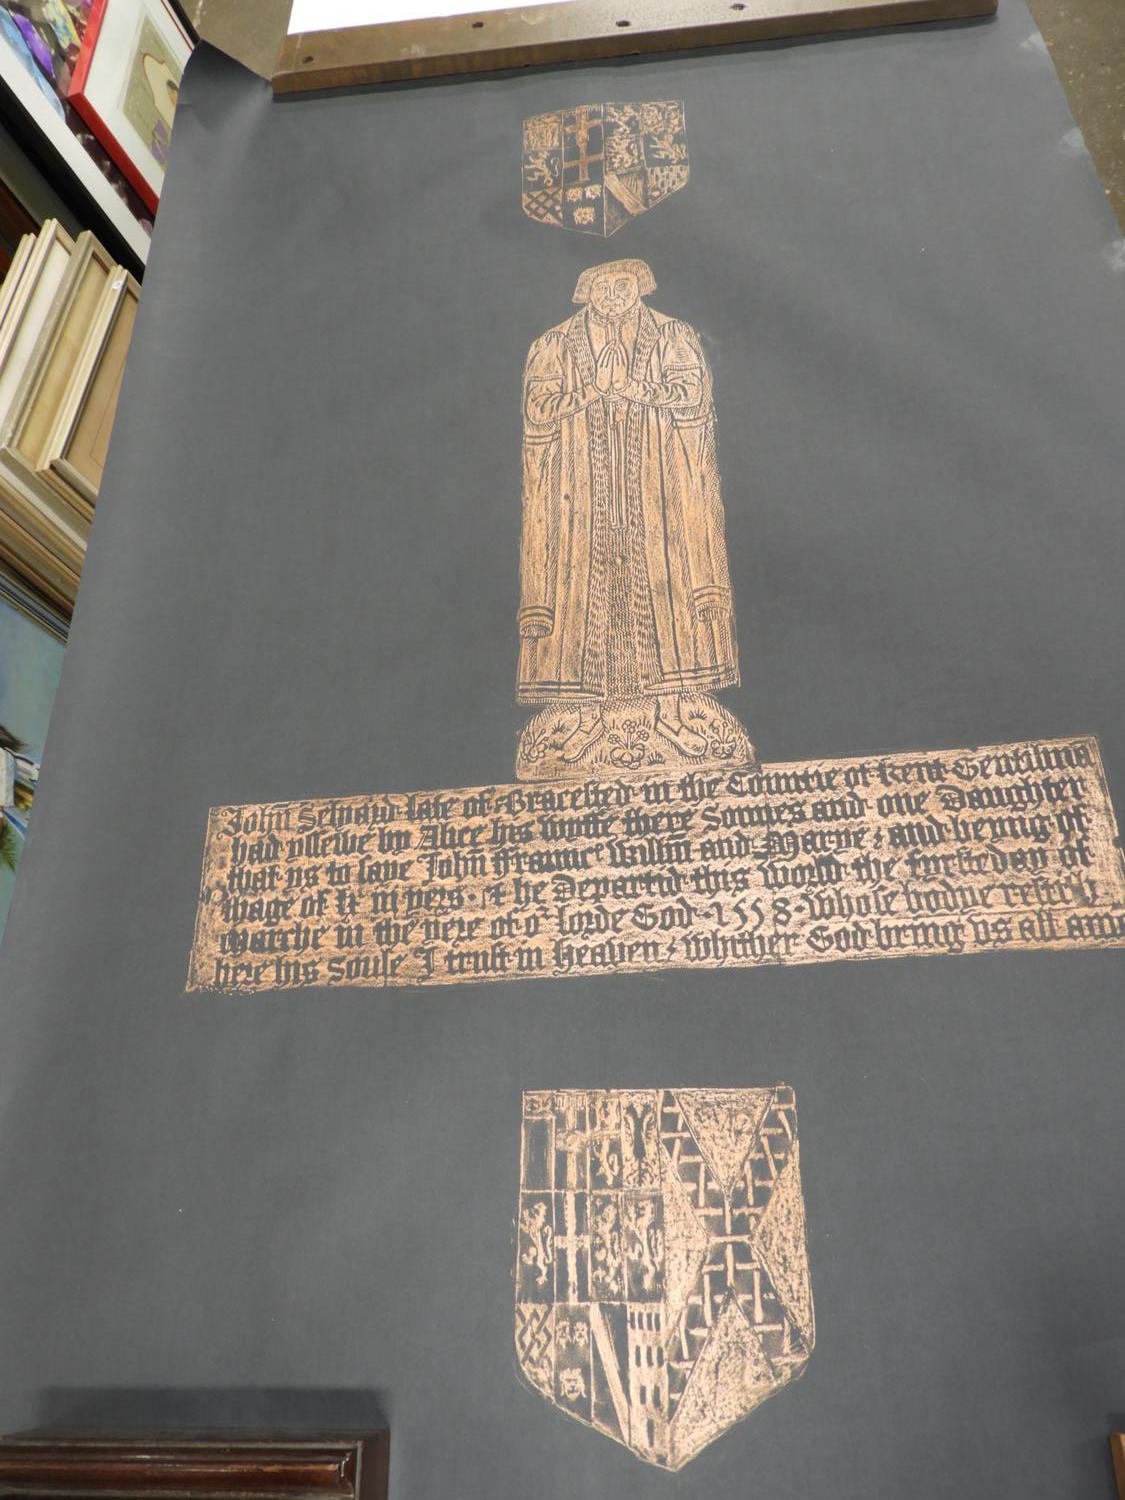 John Selyard late of Bracested in the Countie of Kent Gentilmā
had yssewe by Alice his wyffe there Sonnes and one Daughter
that ys to saye John ffraunc' willm̄ and Marye; and beyng of
thage of yers the Departid this world the fyrste day of
Marche in the yere of oʳ lorde God · 1558 · whose bodye restith
here his Soule I trust in heaven; whither God bring vs all amē